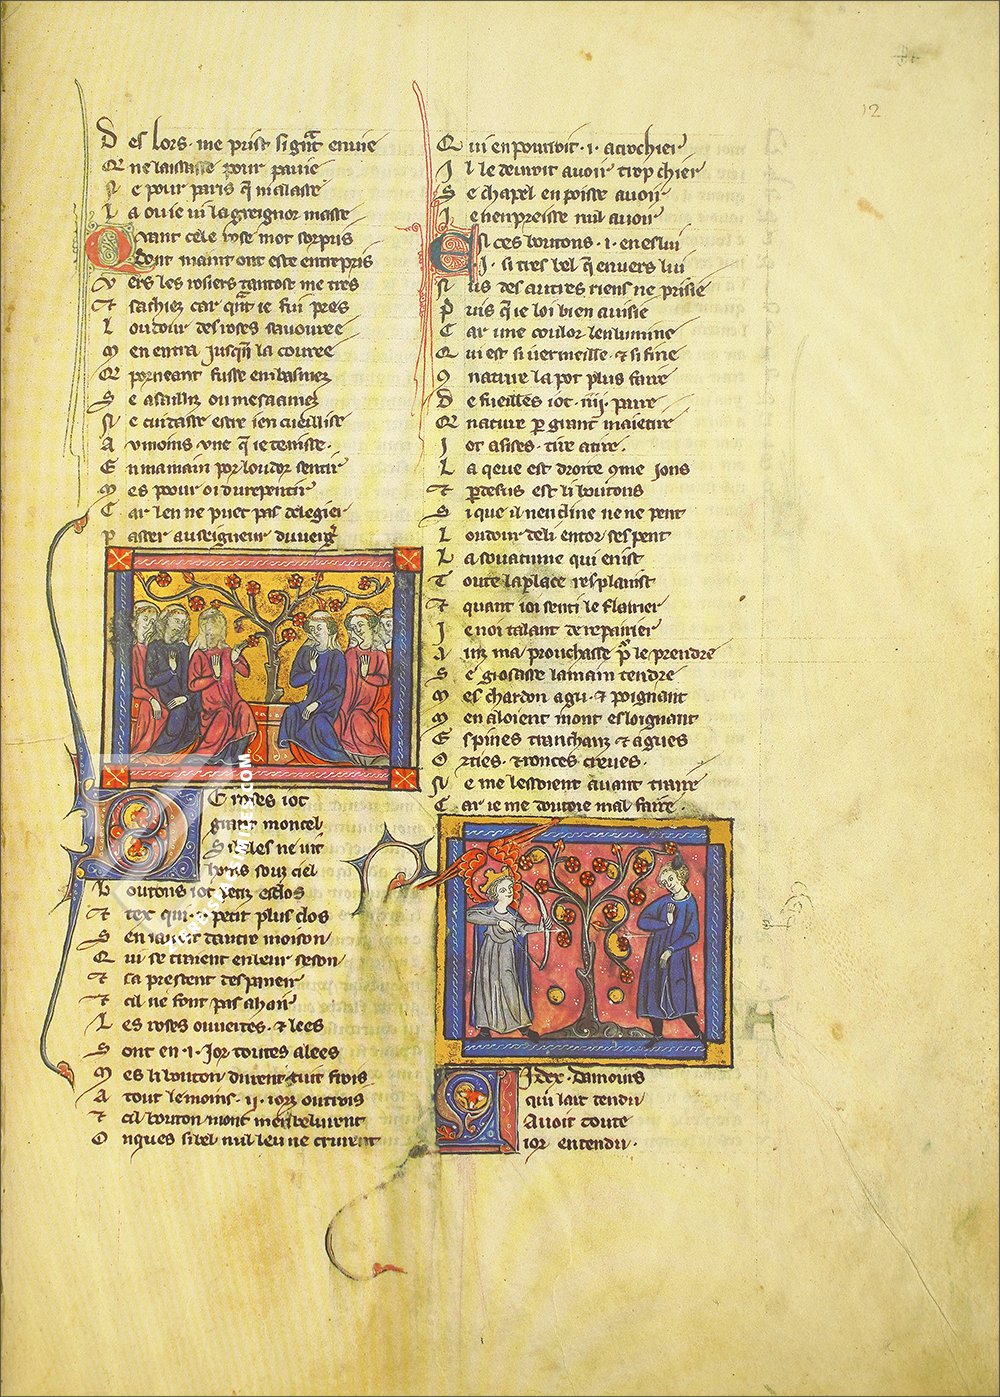 12
Des lors me prist si gñt enuie
Q ne laissasse pour pauie
Ne pour paris q̃ ni alasse
La ou ie ui la greignor masse
Quant cele rose mot sorpris
Dont maint ont este entrepris
Vers les rosiers tantost me tres
⁊ sachiez car qñt ie fui pres
L oudour des roses sauouree
Men entra jusqñ la couree
porneant fusse embasmez
Se assailliz ou mesaamez
Ne cuidasse estre ien cueillisse
A umoins vne q̃ ie tenisse.
En ma main por loudor sentir
Mes poour oi du repentir
Car len ne puet pas de legier
Paster au seigneur du uergier
E roses iot
grant moncel
Si beles ne uit
homs souz ciel
boutons iot petiz ⁊ clos
⁊ tex qui ·⁊· petit plus clos
Sen iauoit dautre moison
Qui se traient en leur seson
⁊ sa prestent despanir
⁊ cil ne font pas a hair
Les roses ouuertes · ⁊ lees
Sont en ·i· jor toutes alees
Mes li bouton durent tuit frois
A tout le moins · ii · iorz ou trois
⁊ cil bouton mont mlt belurent
Onques si bel nul leu ne crurent
Qui en pourroit · i · acrochier
Il le deuroit auoir trop chier
Se chapel en poisse auoir
Je nen preisse nul auoir
E ntre ces boutons · i · en eslui
·I· si tres bel q̃ enuers lui
Nus des autres riens ne prisie
Puis q̃ ie loi bien auisie
Car une coulor lenlumine
Qui est si uermeille · ⁊ si fine
9 nature la pot plus faire
De fueilles iot · iiij · paire
Q nature p grant maietire
I ot asises · tire a tire ·
La qeue est droite 9me jons
⁊ p desus est li boutons
Si que il nencline ne ne pent
L oudour de li entor sespent
La souatume qui en ist
Toute la place resplanist
⁊ quant ioi senti le flairier
Je noi talant de repairier
Ainz ma prouchasse p̃ le prendre
Se giosasse la main tendre
Mes chardon agu · ⁊ poignant
Men aloient mont esloignant
Espines tranchanz ⁊ agues
Orties · ⁊ ronces creues ·
Ne me lessoient auant traire
Car ie me doutoie mal faire ·
Li dex · damours
qui lart tendu
Auoit toute
ior entendu ·